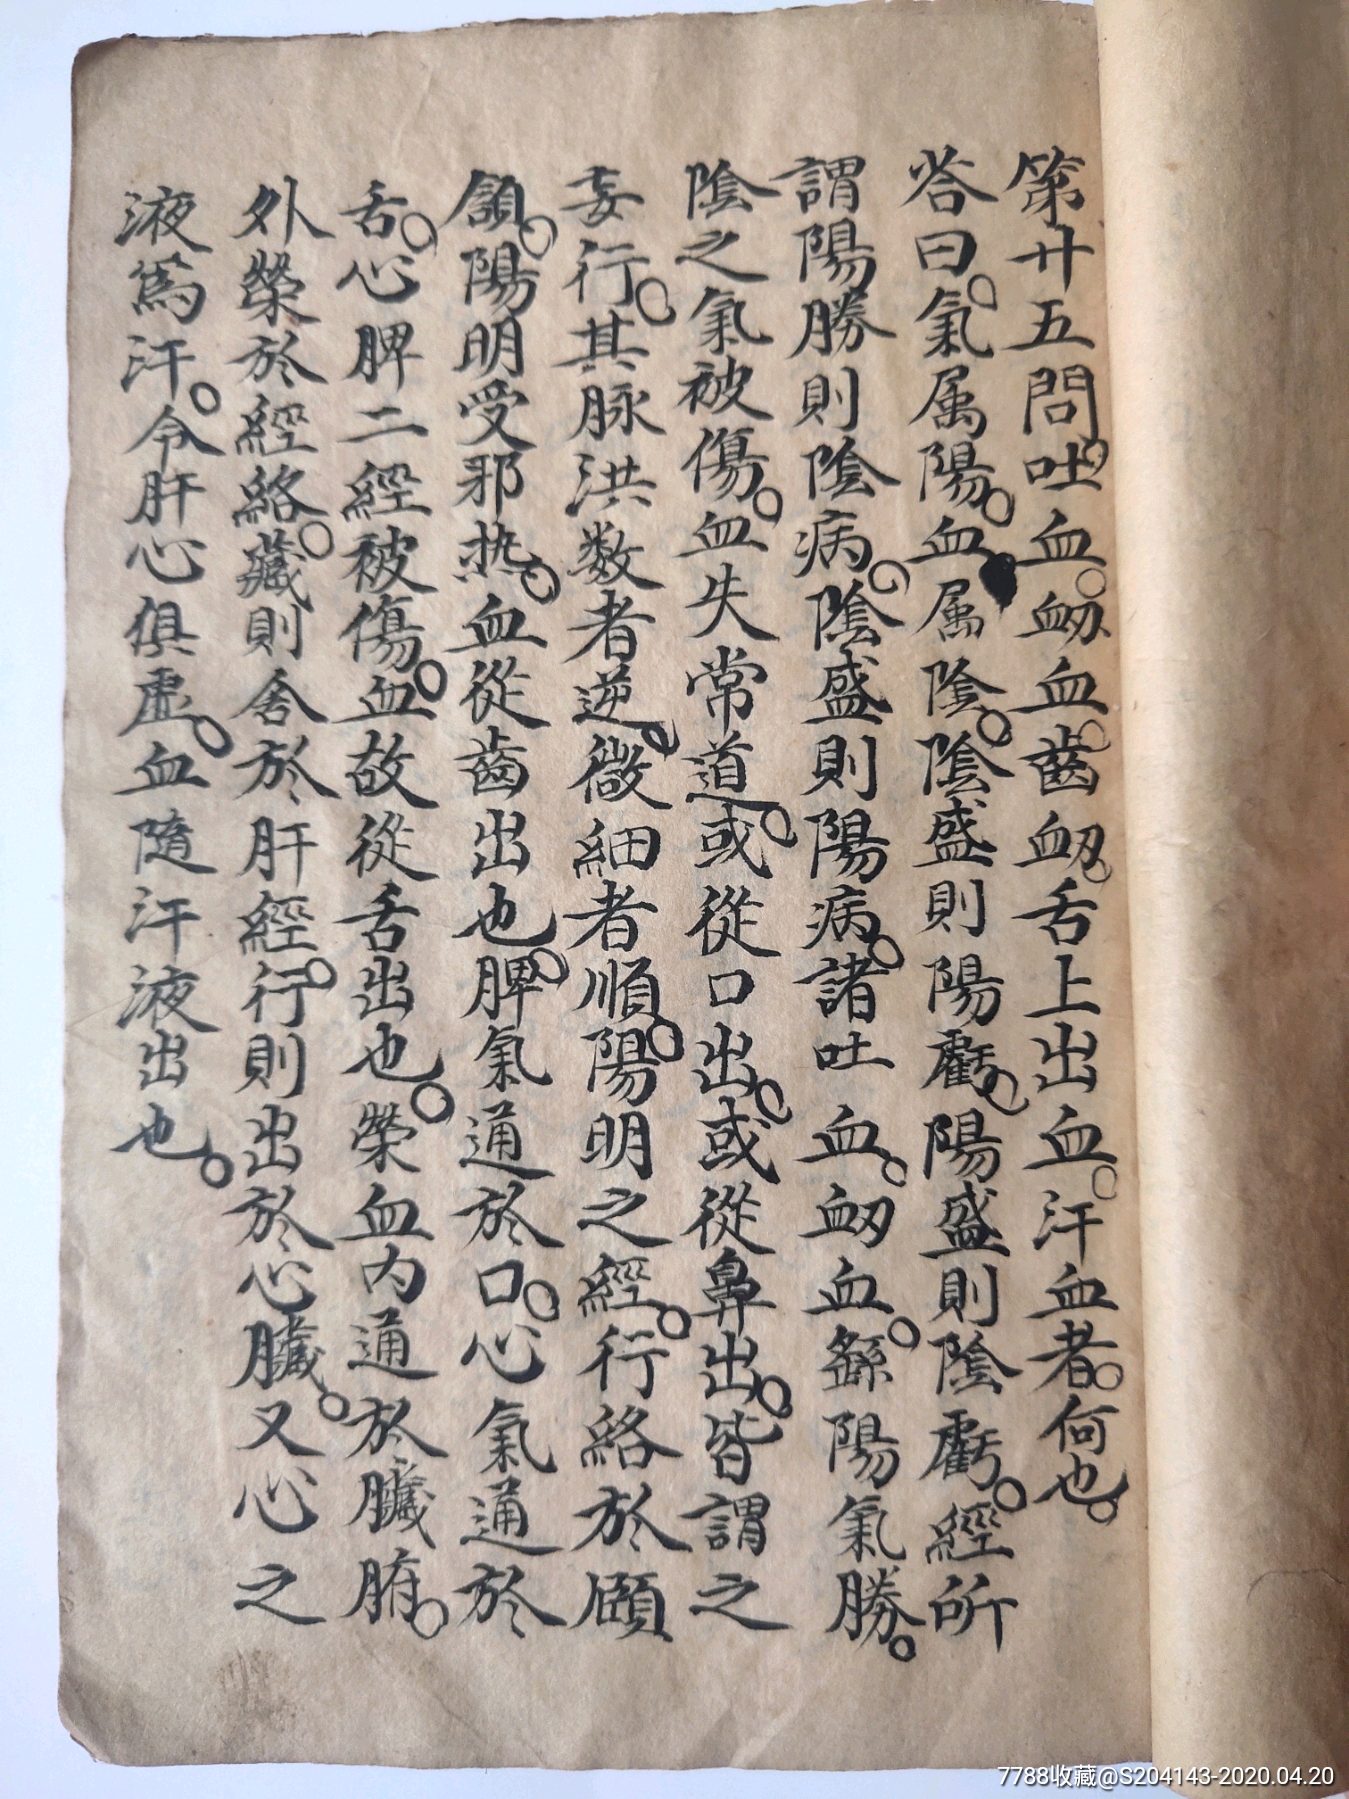 第廿五問吐血。衂血。齒衂。舌上出血。汗血者。何也。
答曰。氣属陽。血属陰。陰盛則陽虧。陽盛則陰虧。經所
謂陽勝則陰病。陰盛則陽病。諸吐血。衂血。繇陽氣勝。
陰之氣被傷。血失常道。或從口出。或從鼻出。皆謂之
妄行。其脉洪数者逆。微細者順。陽明之經。行絡於頤
頷。陽明受邪热。血從齒出也。脾氣通於口。心氣通於
舌。心脾二經被傷。血故從舌出也。榮血内通於臟腑。
外榮於經絡。藏則舍於肝經。行則出於心臟。又心之
液爲汗。令肝心俱虚。血隨汗液出也。
7788收藏@S204143-2020.04.20